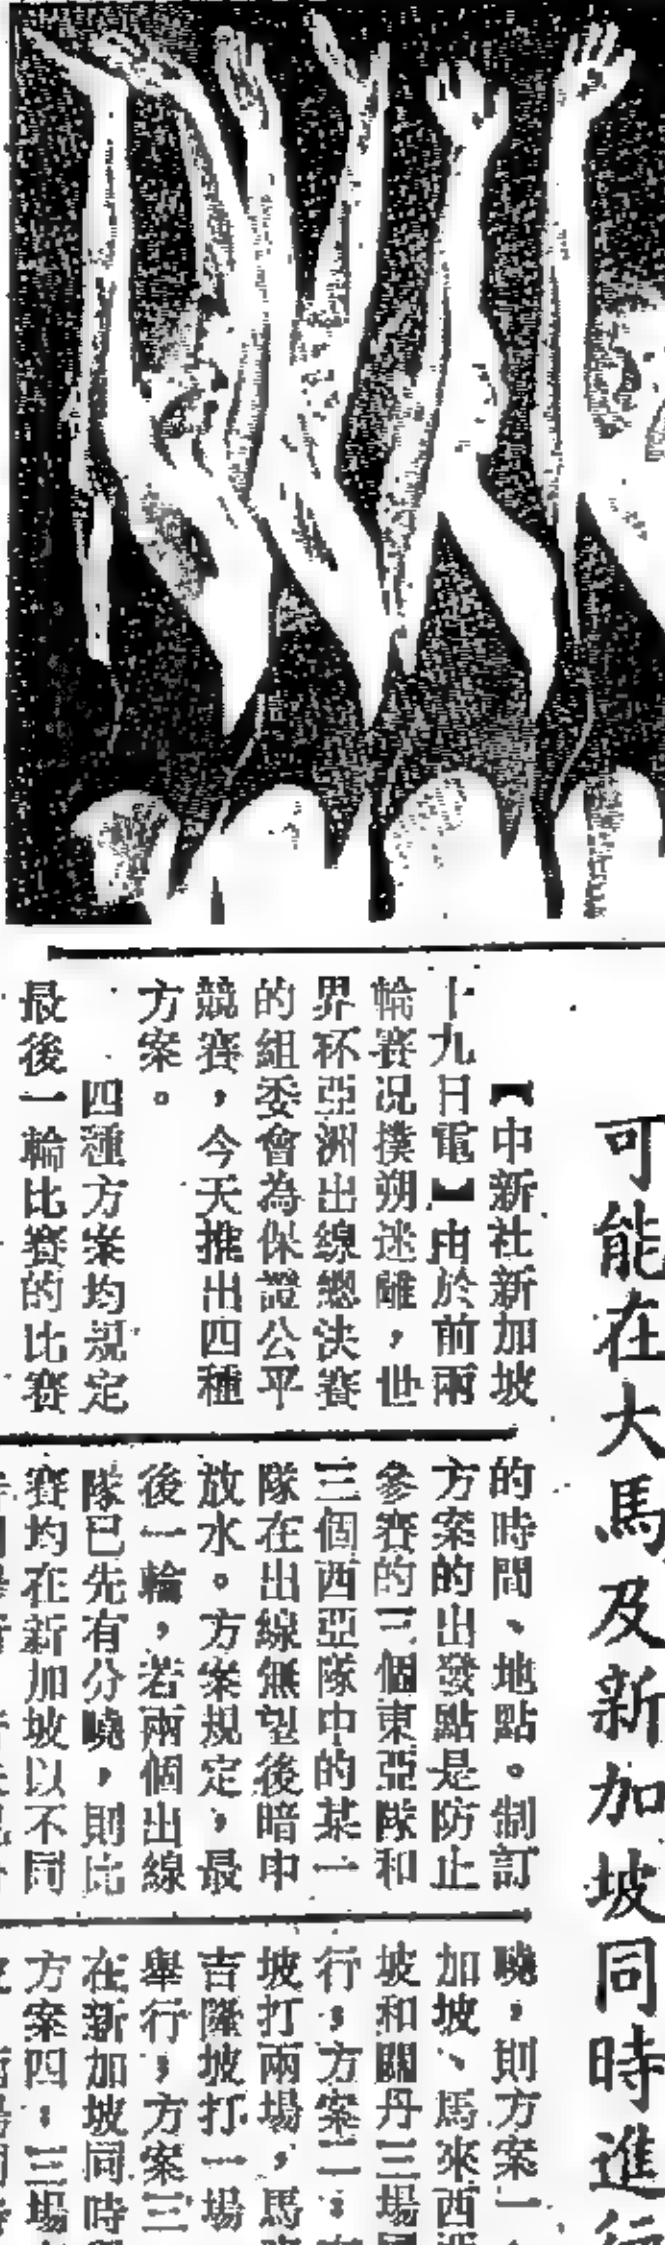 可能在大馬及新加坡同時進行
【中新社新加坡
十九日電】由於前兩
輪賽況撲朔迷離，世
界杯亞洲出線總決賽
的組委會為保證公平
競賽，今天推出四種
方案。
四種方案均規定
最後一輪比賽的比賽
的時間、地點。制訂
方案的出發點是防止
參賽的三個東亞隊和
三個西亞隊中的某一
隊在出線無望後暗中
放水。方案規定，最
後一輪，若兩個出線
隊已先有分曉，則比
賽均在新加坡以不同
曉，則方案一
加坡、馬來西
坡和關丹三場
行，方案二：
坡打兩場，馬
吉隆坡打一場
舉行，方案三
在新加坡同時
方案四：三場